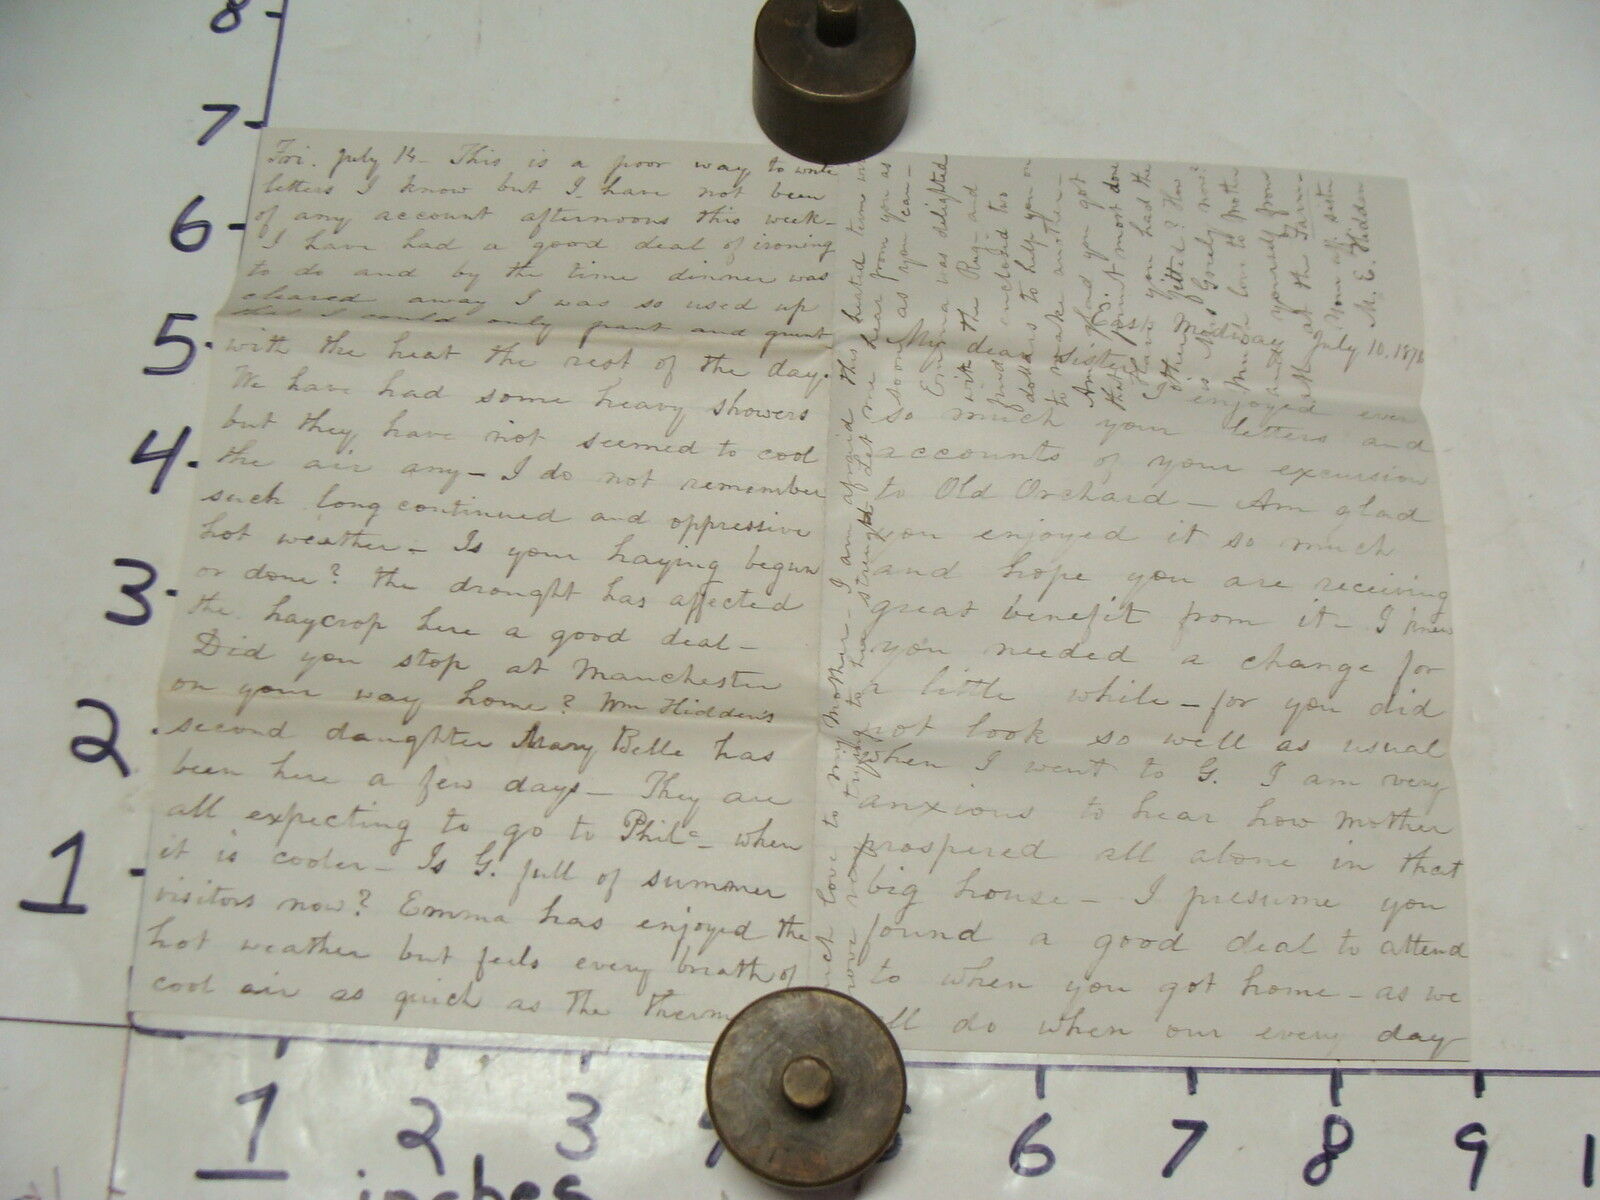 Fri. July 14 - This is a poor way to write
letters I know but I have not been
of any account afternoons this week -
I have had a good deal of ironing
to do and by the time dinner was
cleared away I was so used up
that I could only pant and grunt
with the heat the rest of the day.
We have had some heavy showers
but they have not seemed to cool
the air any - I do not remember
such long continued and oppressive
hot weather - Is your haying begun
or done? the drought has affected
the haycrop here a good deal -
Did you stop at Manchester
on your way home? Wm Hidden's
second daughter Mary Belle has
been here a few days - They are
all expecting to go to Phila - when
it is cooler - Is G. full of summer
visitors now? Emma has enjoyed the
hot weather but feels every breath of
cool air as quick as the therm
Medway July 10, 1876
My dear Sister
enjoyed ever
so much your letters and
accounts of your excursion
to Old Orchard - Am glad
you enjoyed it so much
and hope you are receiving
great benefit from it - I knew
you needed a change for
a little while - for you did
not look so well as usual
when I went to G. I am very
anxious to hear how Mother
prospered all alone in that
big house - I presume you
found a good deal to attend
to when you got home - as we
all do when our every day
much love to my Mother - I am afraid this heated term
trying to her strength Let me hear from you as
soon as you can -
Emma was delighted
with the Rug - and
inclosed two
dollars to help you on
to make another -
Am glad you got
that job most done
Have you had the
other fitted? How
is Miss Gorely now?
Much love to Mother
and yourself from
all at the Farm
Your aff. sister
M. E. Hidden
8
7
6
5
4
3
2
1
1
2
3
6
7
8
9
1
inches